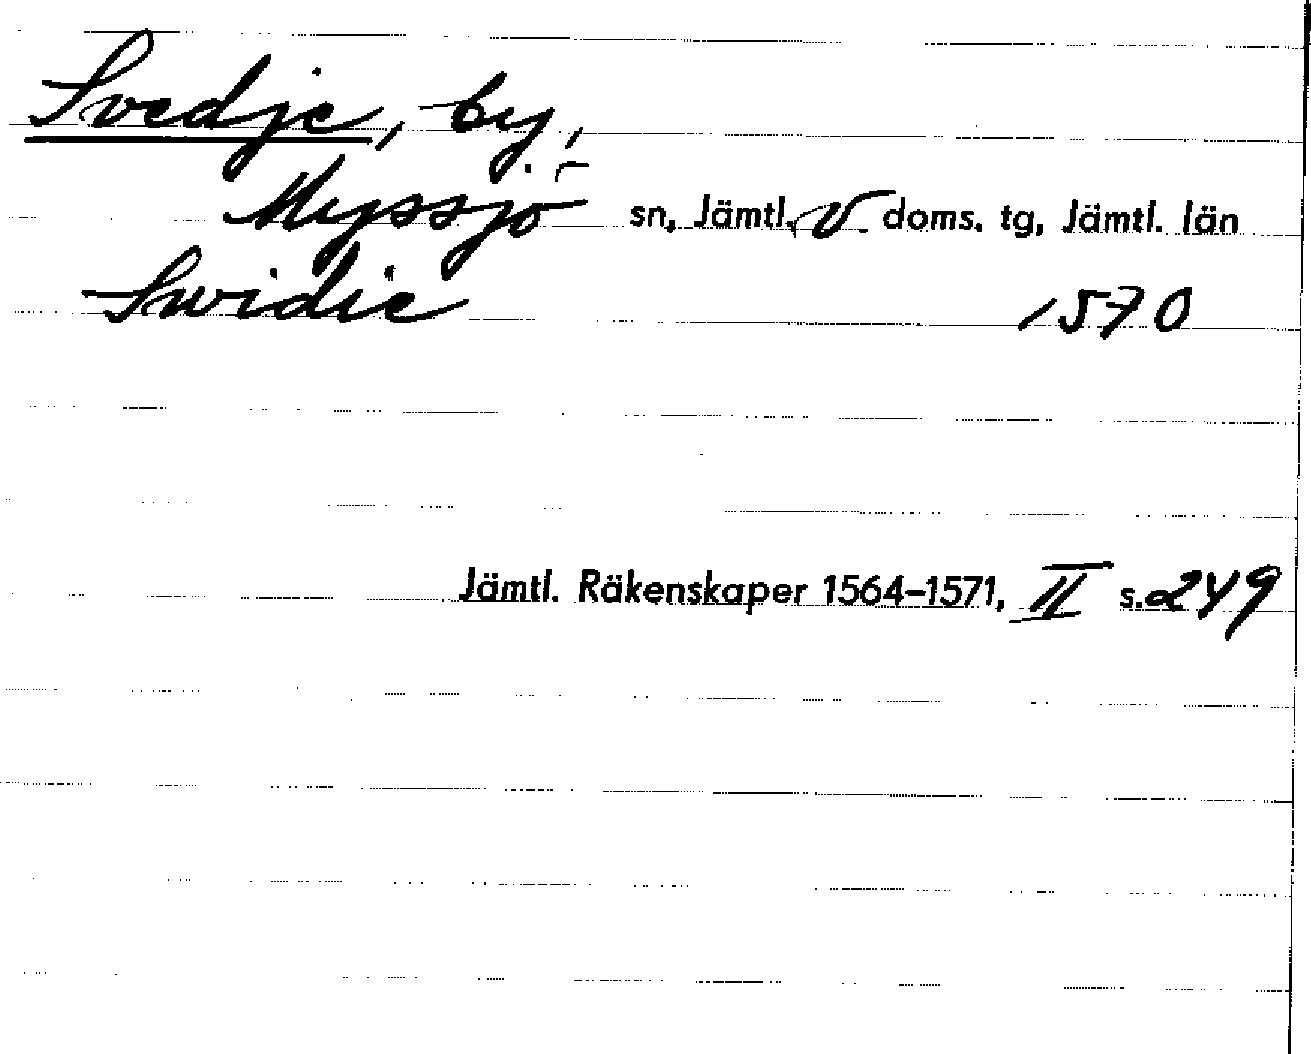 Svedje, by,
Myssjö sn, Jämtl. v doms. tg, Jämtl. län
Swidie 1570
Jämtl. Räkenskaper 1564-1571, II s. 249